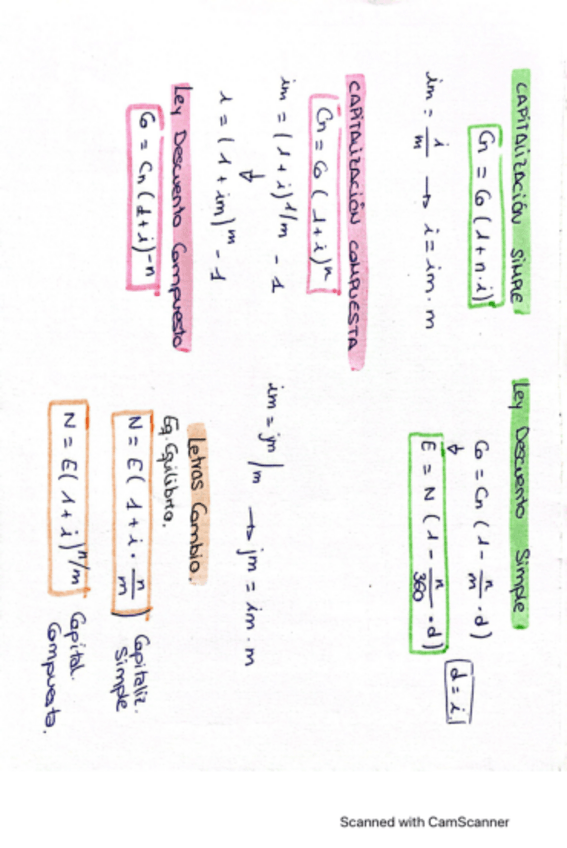 CAPITALIZACIÓN SIMPLE
Cn = Co (1 + n · i)
im = i/m → i = im · m
CAPITALIZACIÓN COMPUESTA
Cn = Co (1 + i)^n
im = (1 + i)^1/m - 1
↓
i = (1 + im)^m - 1
im = jm/m → jm = im · m
Ley Descuento Compuesto
Co = Cn (1 + i)^-n
Ley Descuento Simple
Co = Cn (1 - n/m · d)
↓
E = N (1 - n/360 · d)
d = i
Letras Cambio.
Eq. Equilibrio.
N = E (1 + i · n/m) Capitaliz. Simple
N = E (1 + i)^n/m Capital. Compuesta.
Scanned with CamScanner